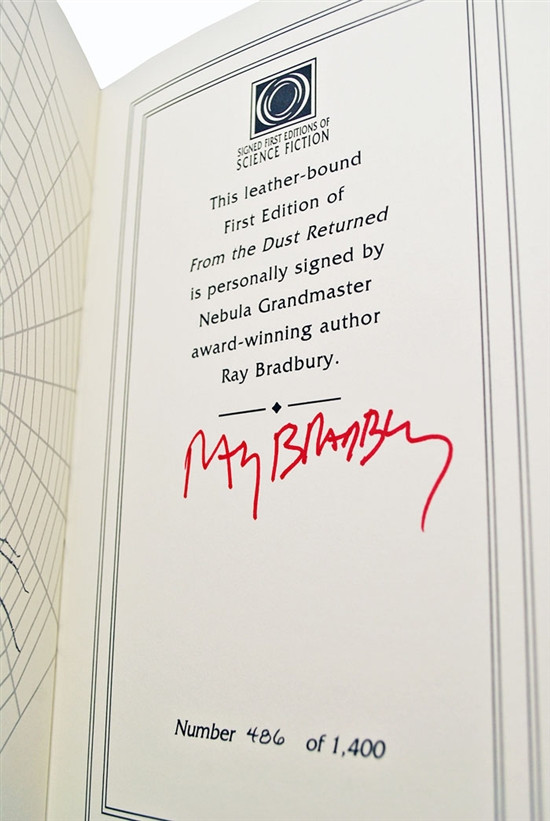 SIGNED FIRST EDITIONS OF
SCIENCE FICTION
This leather-bound
First Edition of
From the Dust Returned
is personally signed by
Nebula Grandmaster
award-winning author
Ray Bradbury.
RAY BRADBURY
Number 486 of 1,400